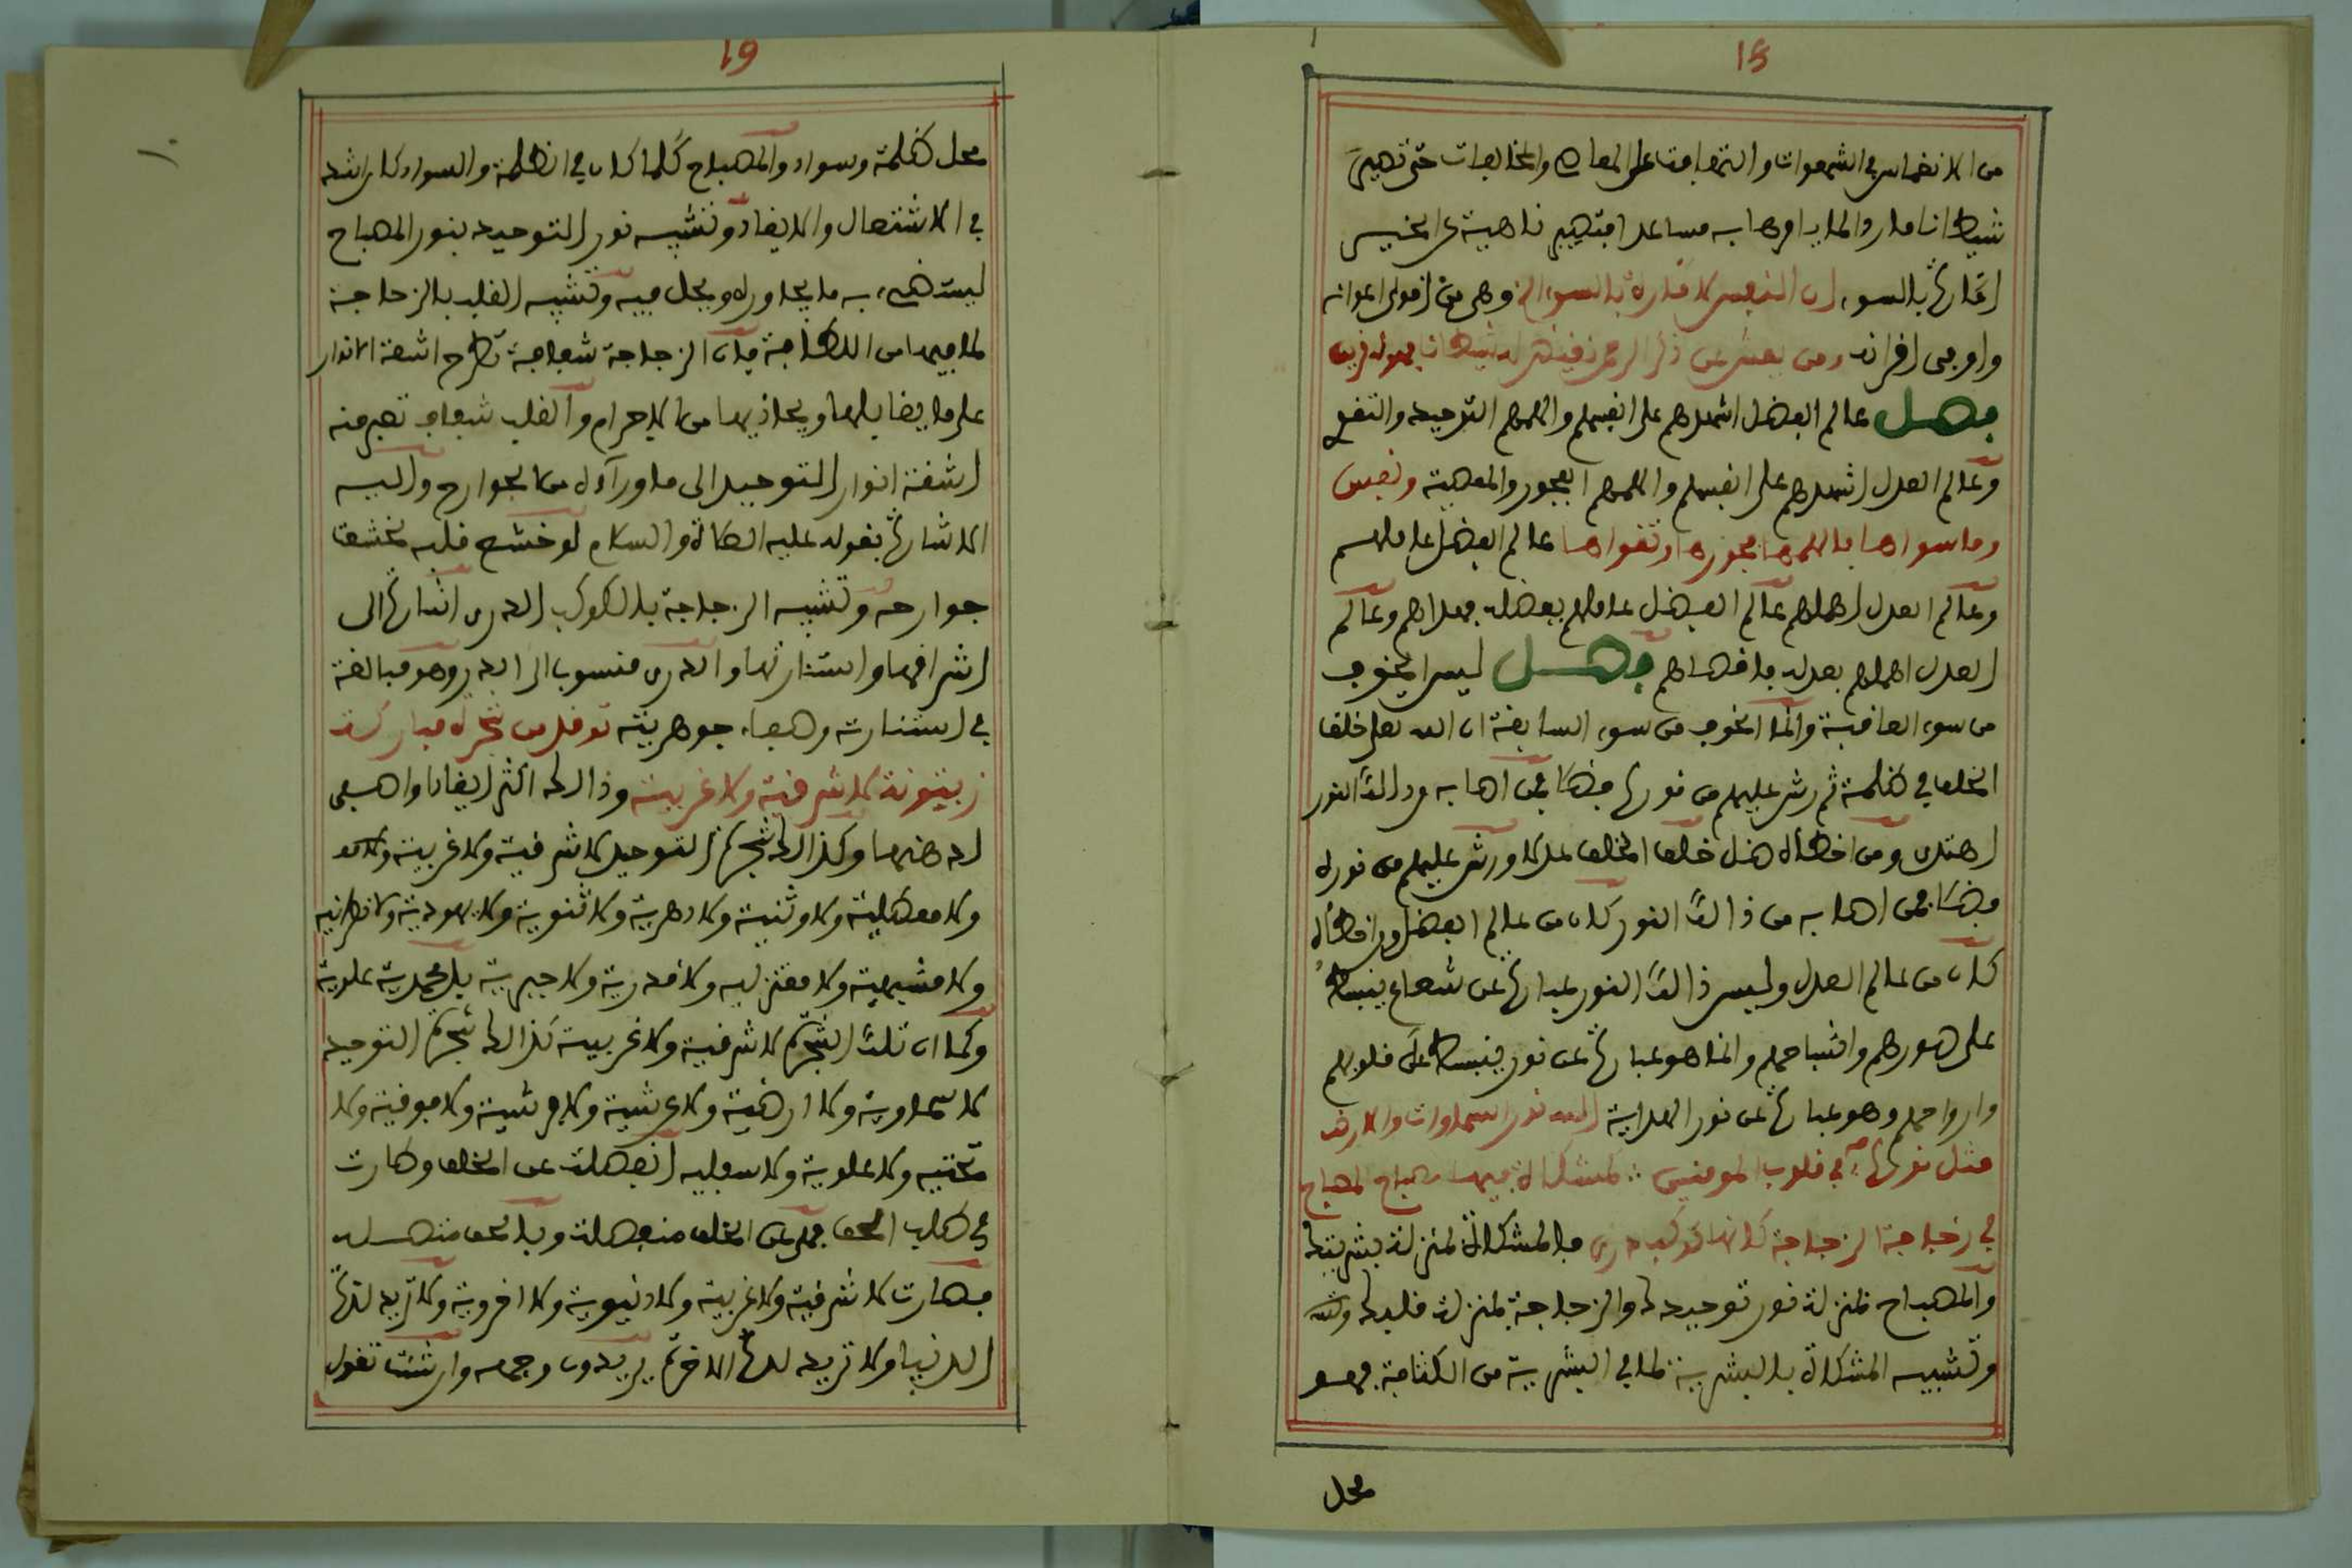 18
من الانغماس في الشهوات والتهافت على المعاصي والمخالفات حتى تصير
شيطانا ماردا لما يدا وصابه مساعدا فتصير ناهية عن الخير
امارة بالسوء ان النفس لامارة بالسوء الا وهي من اقوى اعوانه
واوحى اقرانه ومن يعش عن ذكر الرحمن نقيض له شيطانا فهو له قرين
فصل عالم الفضل اشهدهم على انفسهم والهمهم التوحيد والتقوى
وعالم العدل اشهدهم على انفسهم والهمهم الفجور والمعصية ونفس
وما سواها فالهمها فجورها وتقواها عالم الفضل عاملهم
وعالم العدل اهملهم عالم الفضل عاملهم بفضله فهداهم وعالم
العدل اهملهم بعدله فاضلهم فصل ليس الخوف
من سوء العاقبة وانما الخوف من سوء السابقة ان الله تعلى خلق
الخلق في ظلمة ثم رش عليهم من نوره فمن اصابه من ذلك النور
اهتدى ومن اخطاه ضل خلق الخلق عدلا ورش عليهم من نوره
فضلا فمن اصابه من ذالك النور كان من عالم الفضل ومن اخطاه
كان من عالم العدل وليس ذالك النور عبارة عن شعاع ينبسط
على صورهم واشباحهم وانما هو عبارة عن نور ينبسط على قلوبهم
وارواحهم وهو عبارة عن نور الهداية الله نور السماوات والارض
مثل نوره اي في قلوب المومنين كمشكاة فيها مصباح المصباح
في زجاجة الزجاجة كانها كوكب دري فالمشكاة بمنزلة بشريتك
والمصباح بمنزلة نور توحيدك والزجاجة بمنزلة قلبك
وتشبيه المشكاة بالبشرية لما في البشرية من الكثافة فهو
محل
19
محل ظلمة وسواد والمصباح كلما كان في الظلمة والسواد كان اشد
في الاشتعال والايقاد وتشبيه نور التوحيد بنور المصباح
ليستضيء به ما يجاوره ويحل فيه وتشبيه القلب بالزجاجة
لما فيها من اللطافة فان الزجاجة شفافة تطرح اشعة الانوار
على ما يقابلها ويحاذيها من الاجرام والقلب شفاف تعبر منه
اشعة انوار التوحيد الى ما وراءه من الجوارح واليه
الاشارة بقوله عليه الصلاة والسلام لو خشع قلبه لخشعت
جوارحه وتشبيه الزجاجة بالكوكب الدري اشارة الى
اشراقها واستنارتها والدري منسوب الى الدر وهو مبالغة
في استنارته وصفاء جوهريته توقد من شجرة مباركة
زيتونة لا شرقية ولا غربية وذالك اكثر ايقادا واصفى
لدهنها وكذالك شجرة التوحيد لا شرقية ولا غربية ولا
ولا معطلية ولا وثنية ولا دهرية ولا ثنوية ولا يهودية ولا نصرانية
ولا مشبهية ولا معتزلية ولا قدرية ولا جبرية بل محمدية علوية
وكما ان تلك الشجرة لا شرقية ولا غربية كذالك شجرة التوحيد
لا سماوية ولا ارضية ولا عرشية ولا فرشية ولا فوقية ولا
تحتيه ولا علوية ولا سفليه انفصلت عن الخلق وطارت
في طلب الحق فهي عن الخلق منفصلة وبالحق متصله
فصارت لا شرقية ولا غربية ولا دنيوية ولا اخروية ولا تريد لذة
الدنيا ولا تريد لذة الاخرة يريدون وجهه وان شئت تقول
١٠